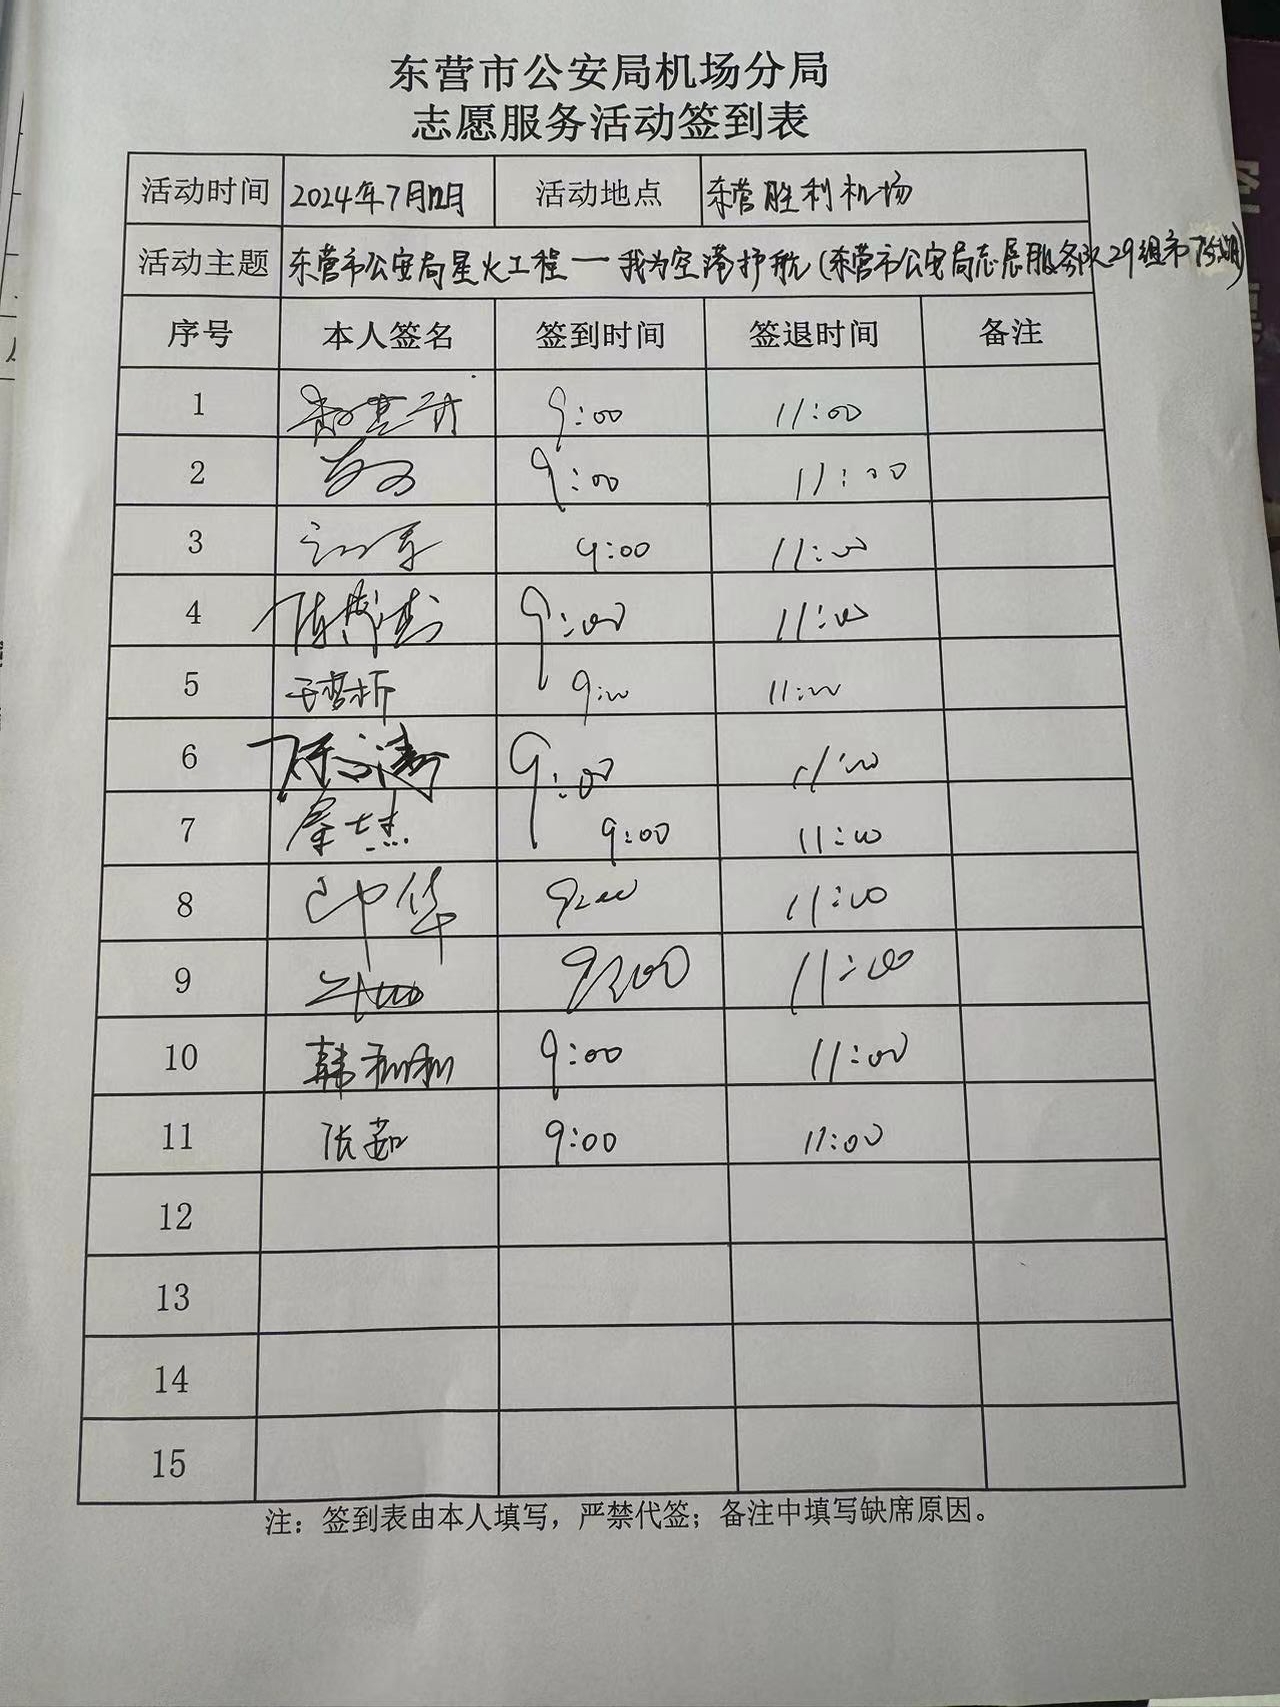 东营市公安局机场分局
志愿服务活动签到表
活动时间 2024年7月 活动地点 东营胜利机场
活动主题 东营市公安局星火工程一我为空港护航(东营市公安局志愿服务队29组市
序号 本人签名 签到时间 签退时间 备注
1 9:00 11:00
2 9:00 11:00
3 9:00 11:00
4 9:00 11:00
5 9:00 11:00
6 9:00 11:00
7 9:00 11:00
8 9:00 11:00
9 9:00 11:00
10 韩 9:00 11:00
11 张茹 9:00 11:00
12
13
14
15
注：签到表由本人填写，严禁代签；备注中填写缺席原因。